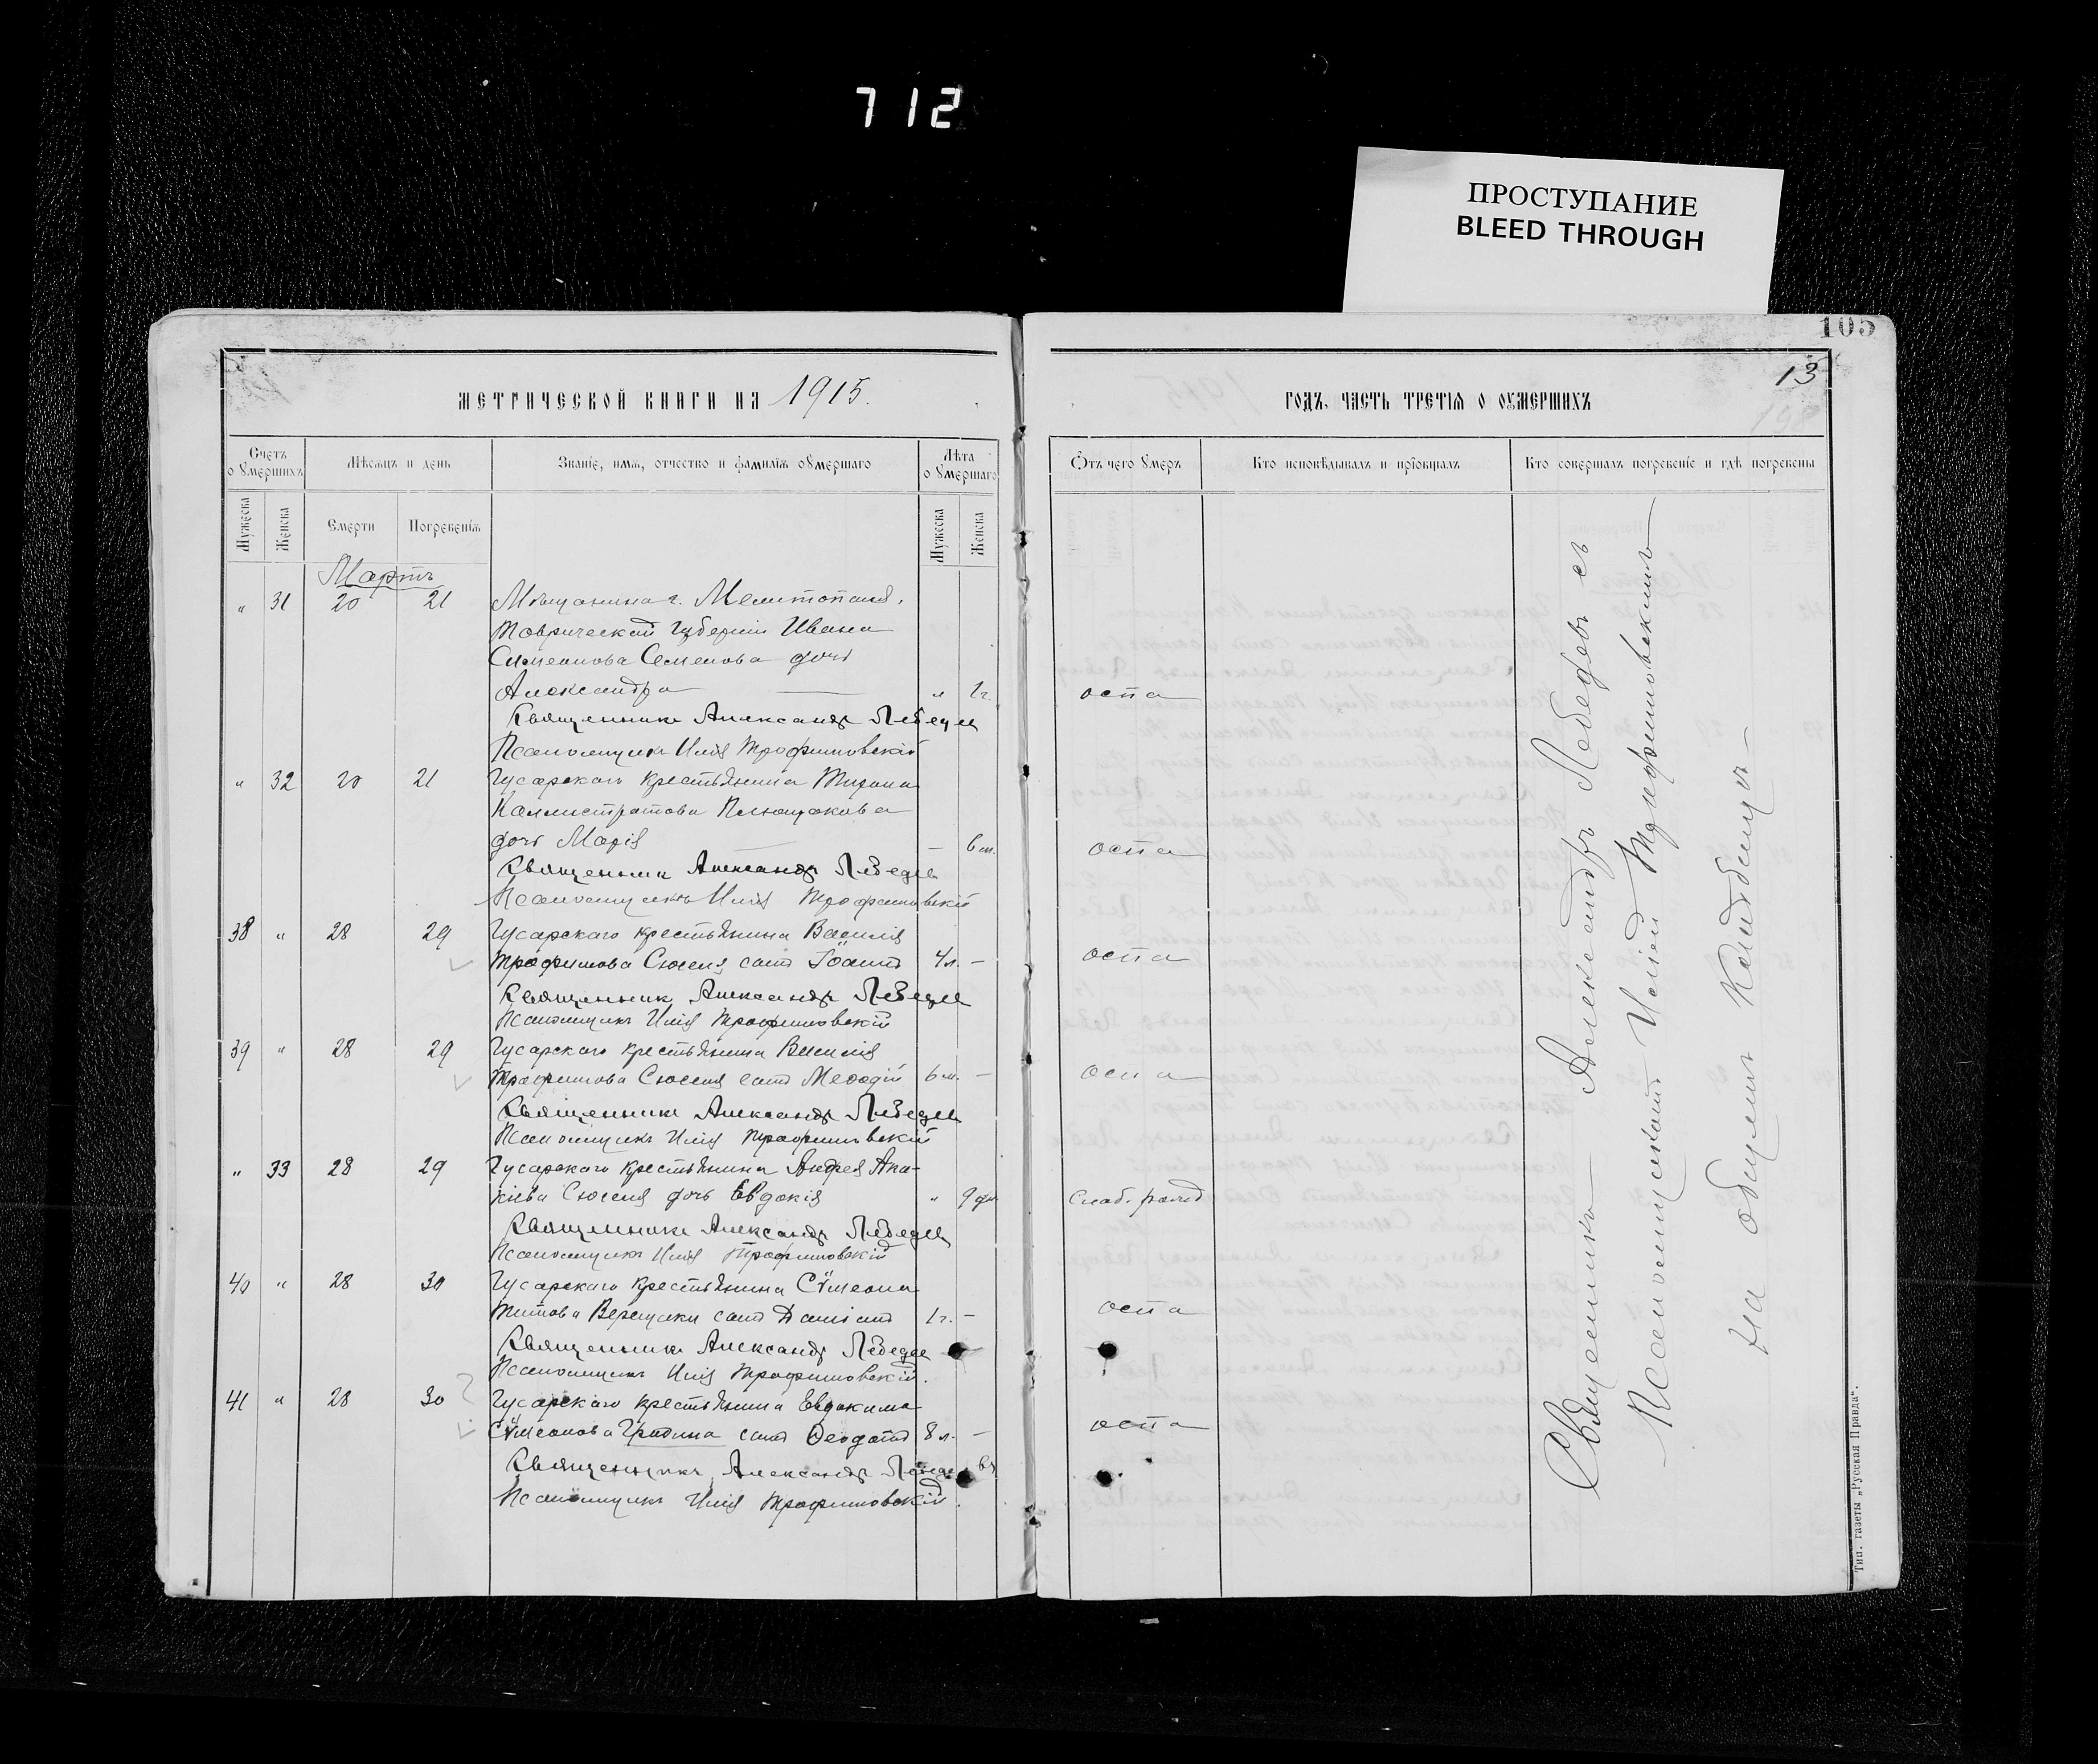 712
ПРОСТУПАНИЕ
BLEED THROUGH
105
13
198
МЕТРИЧЕСКОЙ КНИГИ НА 1915.
ГОДЪ, ЧАСТЬ ТРЕТІЯ О ОУМЕРШИХЪ
Счетъ о Умершихъ
Мѣсяцъ и день
Званіе, имя, отчество и фамилія оумершаго
Лѣта о Умершаго
Отъ чего Умеръ
Кто исповѣдывалъ и пріобщалъ
Кто совершалъ погребеніе и гдѣ погребены
Мужеска
Женска
Смерти
Погребенія
Мужеска
Женска
Мартъ
" 31 20 21 Мѣщанина г. Мелитополя,
Таврической губерніи Ивана
Симеонова Семенова дочь
Александра — " 1 г. оспа
Священникъ Александръ Лебедев
Псаломщикъ Илія Трофимовскій
" 32 20 21 Гусарскаго крестьянина
Каллистратова
дочь Марія — 6 м. оспа
Священникъ Александръ Лебедев
Псаломщикъ Илія Трофимовскій
38 " 28 29 Гусарскаго крестьянина Василія
Трофимова Сюсеня сынъ Іоаннъ 4 л. — оспа
Священник Александръ Лебедев
Псаломщикъ Илія Трофимовскій
39 " 28 29 Гусарскаго крестьянина Василія
Трофимова Сюсеня сынъ Меѳодій 6 м. — оспа
Священникъ Александръ Лебедев
Псаломщикъ Илія Трофимовскій
" 33 28 29 Гусарскаго крестьянина Андрея Ака-
кіева Сюсеня дочь Евдокія " 9 дн. Слаб. рожд
Священникъ Александръ Лебедев
Псаломщикъ Илія Трофимовскій
40 " 28 30 Гусарскаго крестьянина Сѵмеона
Титова Верещаки сынъ Даміанъ 1 г. — оспа
Священникъ Александръ Лебедев
Псаломщикъ Илія Трофимовскій.
41 " 28 30 Гусарскаго крестьянина Евдокима
Сѵмеонова Градина сынъ Ѳеодотъ 8 л. — оспа
Священникъ Александръ Лебедевъ
Псаломщикъ Илія Трофимовскій.
Священникъ — Александръ Лебедевъ съ
Псаломщикомъ Иліей Трофимовскимъ —
на общемъ кладбищѣ —
Тип. газеты „Русская Правда".